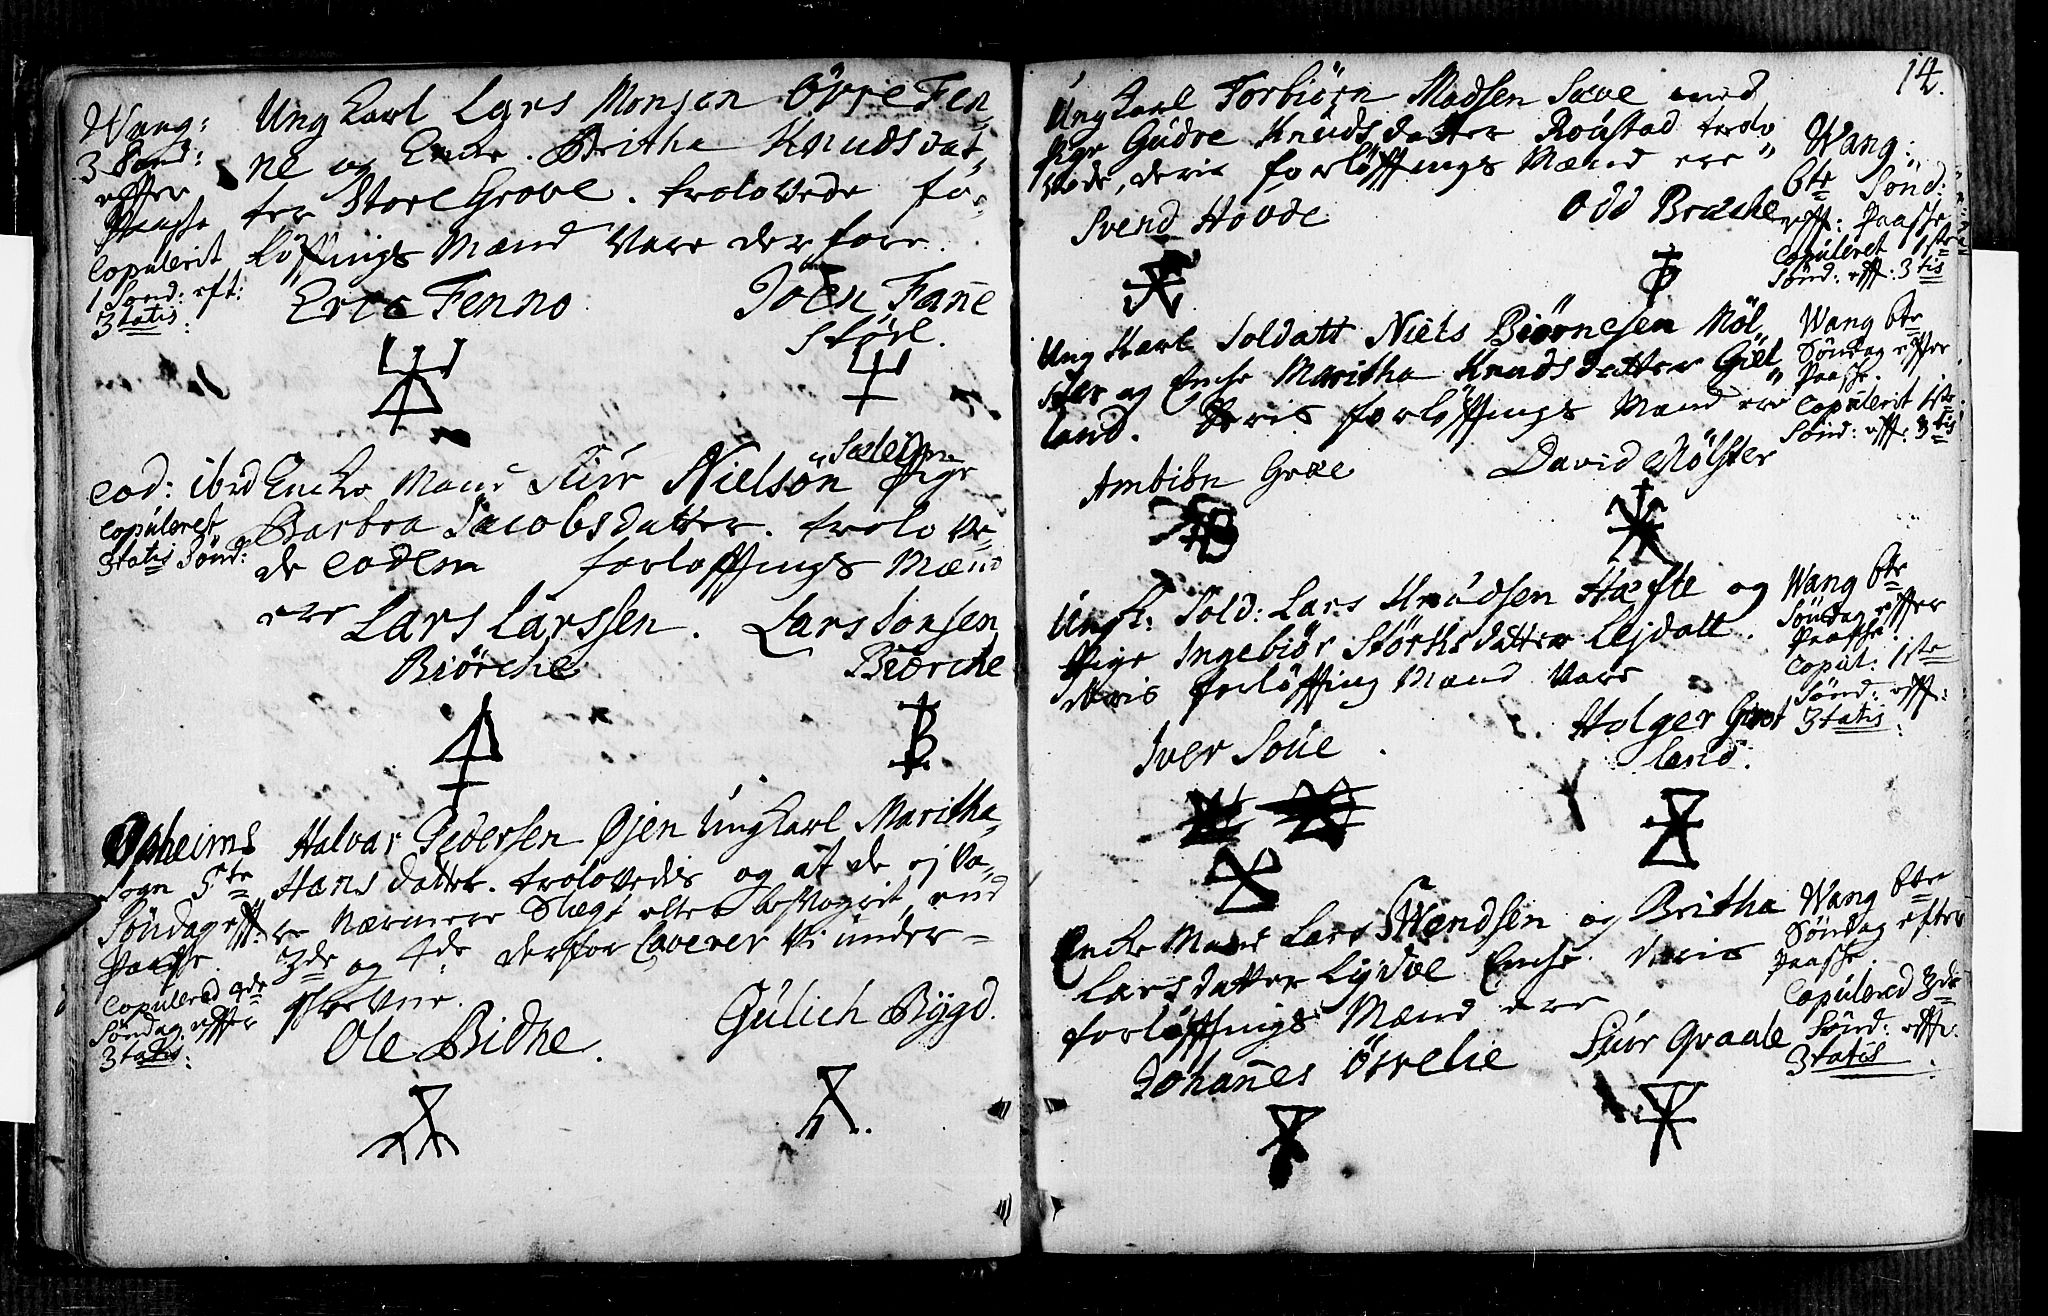 Wang:
3 Sønd:
effter
Paasche
Copulerit
1 Sønd: eft:
3tatis:
Ung Karl Lars Monsen Øvre Fen-
ne og Encke Britha Knudsdat-
ter Store Grove. trolovede for-
løffnings Mænd vare derfore
Eric Fenno Joen Fane
Støvl.
eod: ibid
Copuleret
3tatis Sønd:
Encke Mand Siur Nielsøn Sæleim Pige
Barbra Jacobsdatter. trolove-
de eodem forløffnings Mænd
ere Lars Larssen. Lars Jonsen
Biørche Biørche
Opheims
Sogn 5te
Søndag eff:
Paasche.
Copulered 4de
Søndag effter
3tatis:
Halvar Pedersen Øjen Ung Karl Maritha
Hans datter. trolovedes og at de ej va-
re nærmere Slægt eller besvogrit end
3de og 4de derfor Caverer vi under-
skrevne.
Ole Bidne. Gulich Bÿgd.
14.
Ung Karl Torbiørn Madsen Saue med
Pige Gudve Knudsdatter Rogstad trolo
vede, deris forløffnings Mænd ere
Svend Hovde Odd Brache
Wang:
6te Sønd:
eff: Paasche
Copuleret 1ste
Sønd: eff: 3tis
Ung Karl Soldatt Niels Biørnesen Møl-
ster og Encke Maritha Knudsdatter Giel-
land. Deris forløffnings Mænd ere
Ambiøn Grøe David Mølster
Wang 6te
Søndag effter
Paasche.
Copulerit 1ste
Sønd: eff: 3tis
Ung K: Sold: Lars Knudsen Hæfte og
Pige Ingebiør Størchsdatter Lejdall.
deris forløffning Mænd vare
Iver Soue Holger Giret
land.
Wang 6te
Søndag effter
Paasche.
Copul: 1ste
Sønd: eff:
3tatis:
Encke Mand Lars Swendsen og Britha
Larsdatter Lydve Encke. deris
forløffnings Mænd ere
Johannes Øvrelie Siur Graale
Wang 6te
Søndag efter
Paasche.
Copulered 3de
Sønd: eff:
3tatis